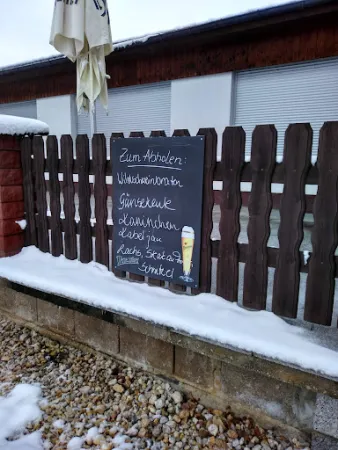 Zum Abholen:
Wildschweinbraten
Gänsekeule
Kaninchen
Kabeljau
Lachs, Skakander
Schnitzel